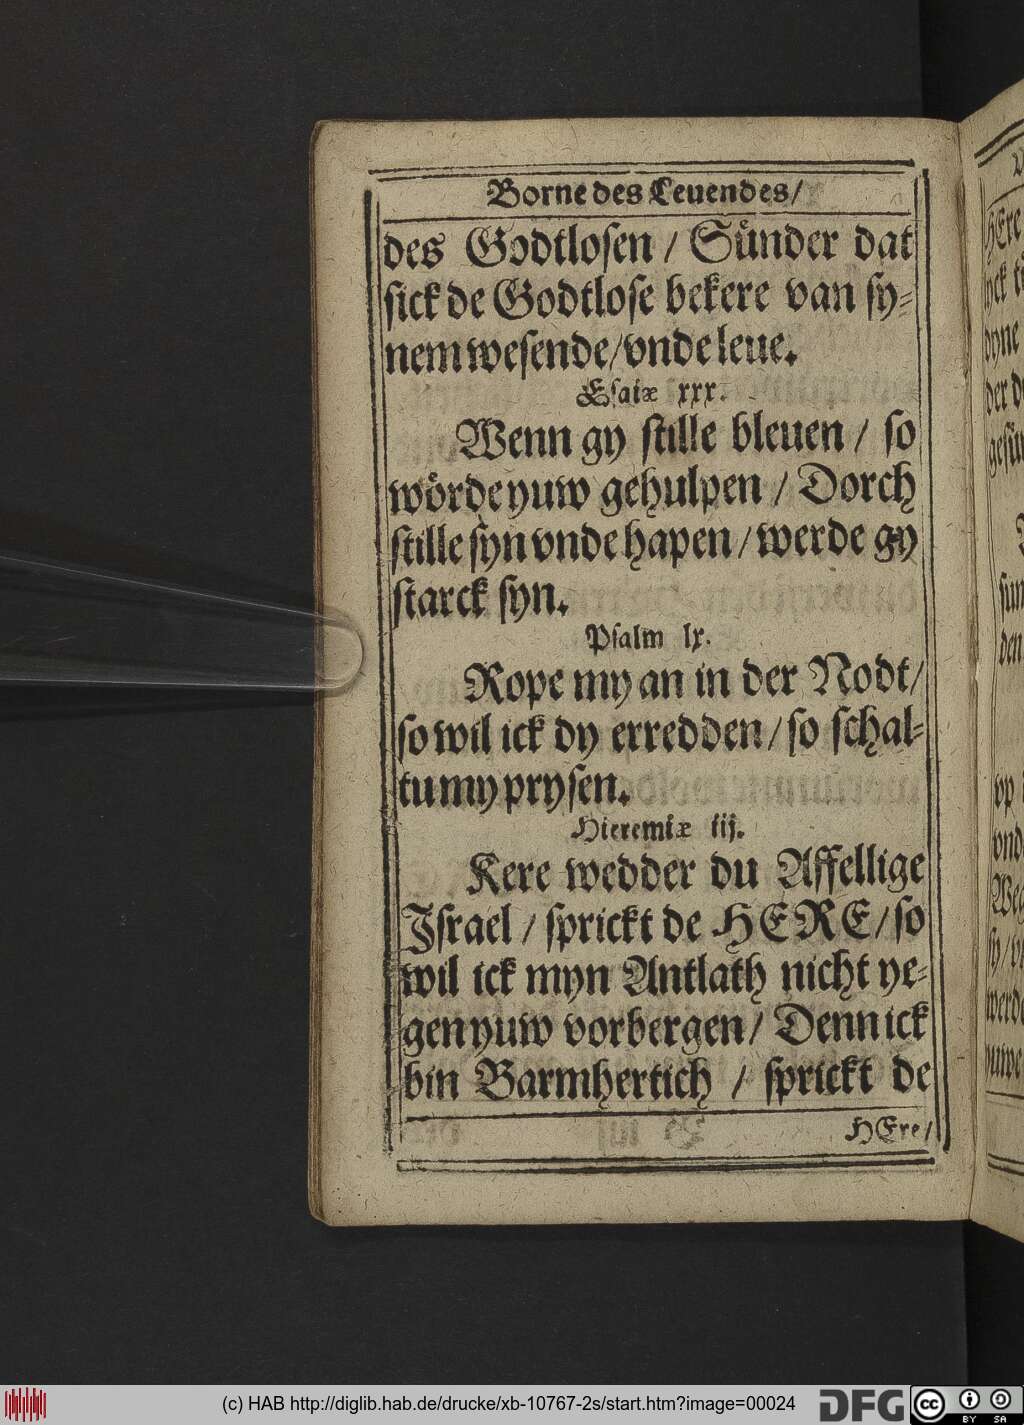 Borne des Leuendes/
des Godtlosen / Sünder dat
sick de Godtlose bekere van sy-
nem wesende/vnde leue.
Esaiæ xxx.
Wenn gy stille bleuen / so
wörde yuw gehulpen / Dorch
stille syn vnde hapen / werde gy
starck syn.
Psalm lx.
Rope my an in der Nodt/
so wil ick dy erredden/so schal-
tu my prysen.
Hieremiæ iij.
Kere wedder du Affellige
Israel / sprickt de HERE/so
wil ick myn Antlath nicht ye-
gen yuw vorbergen/ Denn ick
bin Barmhertich / sprickt de
HEre/
HEre
yck
dyne
der d
gesü
sün
den
vp
vnd
Weg
sy /
werde
yuwe
(c) HAB http://diglib.hab.de/drucke/xb-10767-2s/start.htm?image=00024
DFG
cc
BY SA